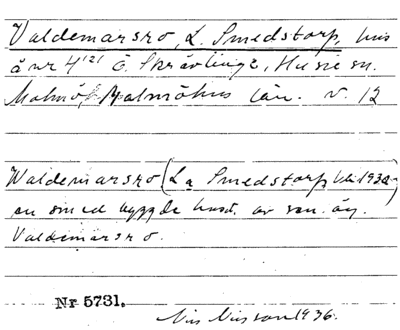 Valdemarsro, L. Smedstorp, hus
å nr 4¹²¹ Ö. Skrävlinge, Husie sn.
Malmö, Malmöhus län. v. 12
Waldemarsro (La Smedstorp 1932)
en smed byggde huset av sen. äg.
Valdemarsro.
Nr 5731.
Nils Nilsson 1936.